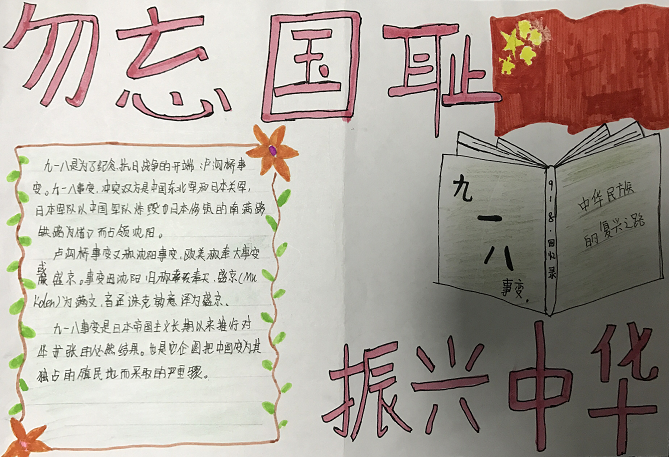 勿忘国耻
九一八是为了纪念抗日战争的开端,卢沟桥事
变。九一八事变,冲突双方是中国东北军和日本关军,
日本军队以中国军队炸毁日本修筑的南满路
铁路为借口而占领沈阳。
卢沟桥事变又称沈阳事变,
盛京。事变因沈阳旧称奉天,盛京(Mu
kden)为满文,音译为盛京。
九一八事变是日本帝国主义长期以来推行对
华扩张的必然结果。也是它企图把中国变为其
独占的殖民地而采取的严重步骤。
九一八
事变。
918·回忆录
中华民族
的复兴之路
振兴中华